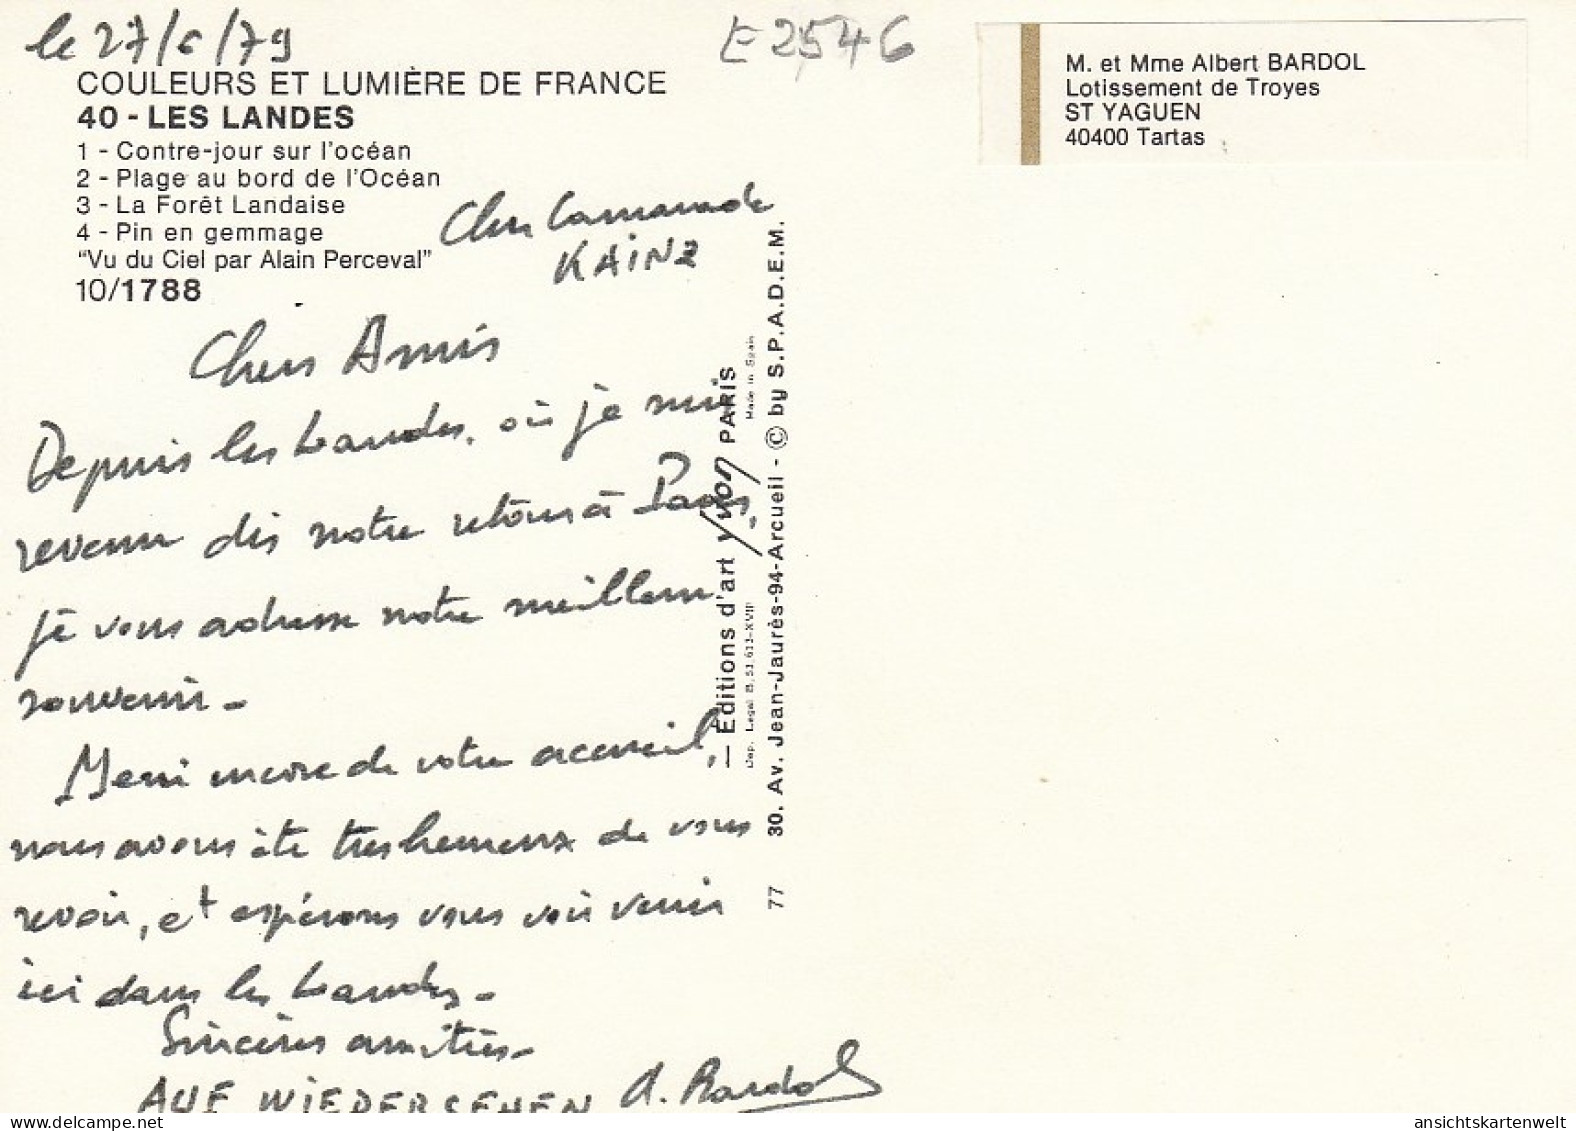 le 27/6/79
E2546
COULEURS ET LUMIÈRE DE FRANCE
40 - LES LANDES
1 - Contre-jour sur l'océan
2 - Plage au bord de l'Océan
3 - La Forêt Landaise
4 - Pin en gemmage
"Vu du Ciel par Alain Perceval"
10/1788
M. et Mme Albert BARDOL
Lotissement de Troyes
ST YAGUEN
40400 Tartas
Cher Camarade
KAINZ
Chers Amis
Depuis les Landes, où je suis
revenu dès notre retour à Paris,
je vous adresse notre meilleur
souvenir -
Merci encore de votre accueil,
nous avons été très heureux de vous
revoir, et espérons vous voir venir
ici dans les Landes -
Sincères amitiés -
AUF WIEDERSEHEN A. Bardol
— Editions d'art yvon PARIS
Dep. Legal B. 51.613-XVIII Made in Spain
77 30. Av. Jean-Jaurès-94-Arcueil - © by S.P.A.D.E.M.
ansichtskartenwelt